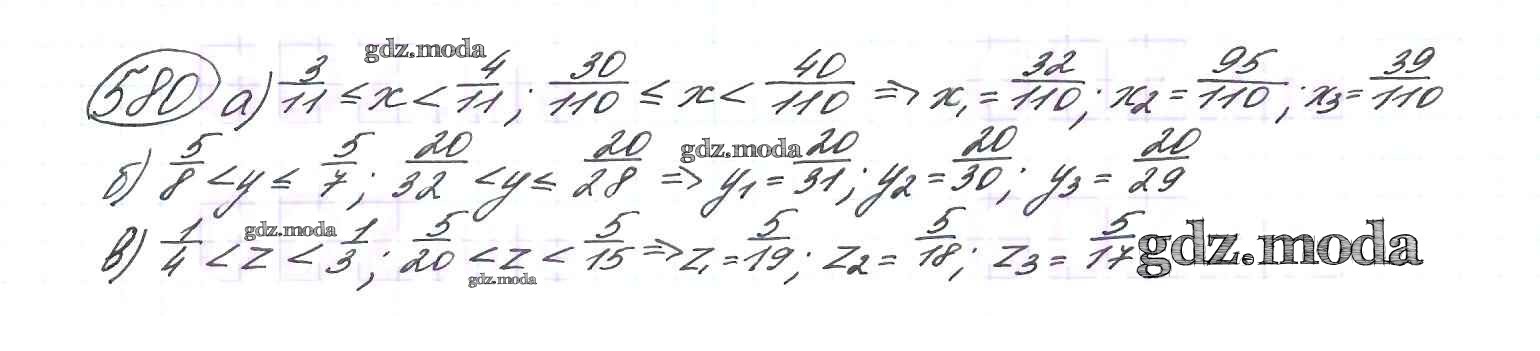 gdz.moda
580 а) 3/11 ≤ x < 4/11; 30/110 ≤ x < 40/110 => x₁ = 32/110; x₂ = 95/110; x₃ = 39/110
gdz.moda
б) 5/8 < y ≤ 5/7; 20/32 < y ≤ 20/28 => y₁ = 20/31; y₂ = 20/30; y₃ = 20/29
gdz.moda
в) 1/4 < z < 1/3; 5/20 < z < 5/15 => z₁ = 5/19; z₂ = 5/18; z₃ = 5/17
gdz.moda
gdz.moda